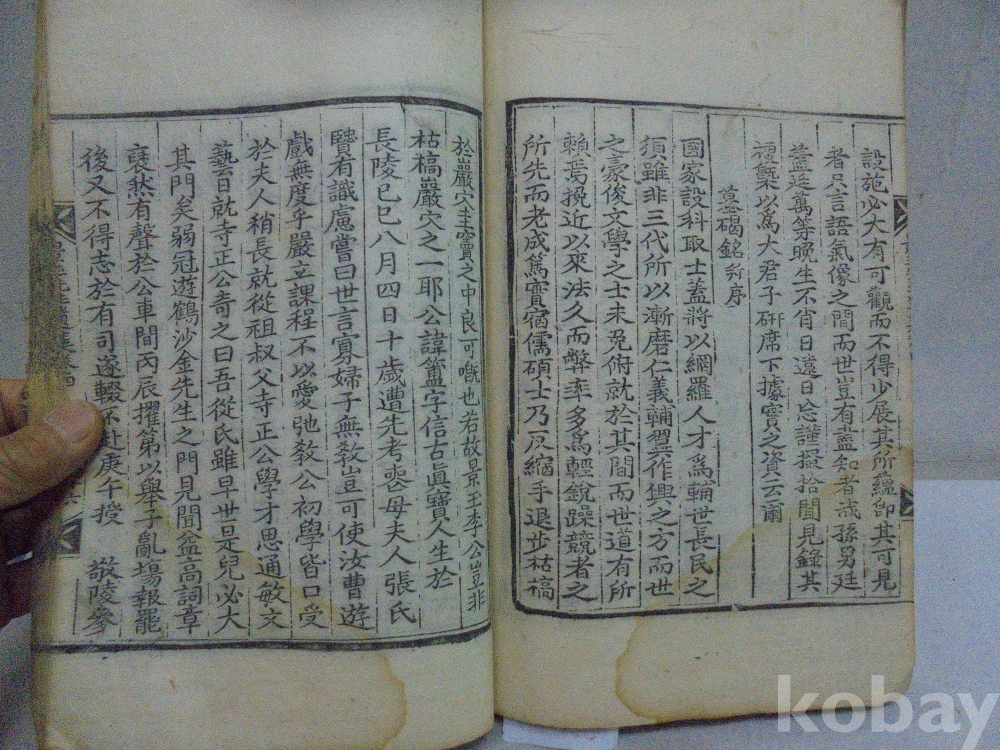 設施必大有可觀而不得少展其所蘊卽其可見
者只言語氣像之間而世豈有盡知者哉孫男廷
藎廷藎等晚生不肖日遠日忘謹掇拾聞見錄其
槩以爲大君子硏席下據實之資云爾
墓碣銘幷序
國家設科取士蓋將以網羅人才爲輔世長民之
須雖非三代所以漸磨仁義輔翼作興之方而世
之豪俊文學之士未免俯就於其間而世道有所
賴焉挽近以來法久而弊率多爲輕銳躁競者之
所先而老成篤實宿儒碩士乃反縮手退步枯槁
於巖穴圭竇之中良可嘅也若故景玉李公豈非
枯槁巖穴之一耶公諱簠字信古眞寶人生於
長陵己巳八月四日十歲遭先考喪母夫人張氏
賢有識慮嘗曰世言寡婦子無敎豈可使汝曹遊
戲無度乎嚴立課程不以愛弛敎公初學皆口受
於夫人稍長就從祖叔父寺正公學才思通敏文
藝日就寺正公奇之曰吾從氏雖早世是兒必大
其門矣弱冠遊鶴沙金先生之門見聞益高詞章
裒然有聲於公車間丙辰擢第以擧子亂場報罷
後又不得志於有司遂輟不赴庚午授 敬陵參
kobay